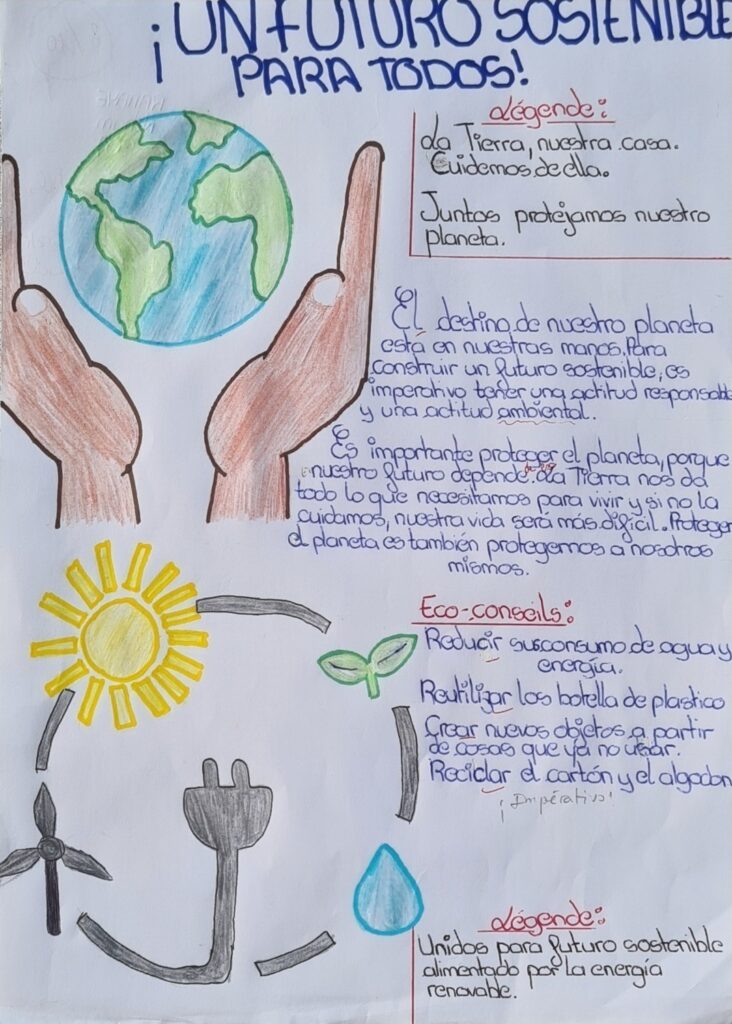 ¡UN FUTURO SOSTENIBLE
PARA TODOS!
Légende:
La Tierra, nuestra casa.
Cuidemos de ella.
Juntos protéjamos nuestro
planeta.
El destino de nuestro planeta
está en nuestras manos. Para
construir un futuro sostenible, es
imperativo tener una actitud responsable
y una actitud ambiental.
Es importante proteger el planeta, porque
nuestro futuro depende. La Tierra nos da
todo lo que necesitamos para vivir y si no la
cuidamos, nuestra vida será más difícil. Proteger
el planeta es también protegernos a nosotros
mismos.
Eco-conseils:
Reducir sus consumo de agua y
energía.
Reutilizar los botella de plastico
Crear nuevos objetos a partir
de cosas que ya no usar.
Reciclar el cartón y el algodon
¡Impérativo!
Légende:
Unidos para futuro sostenible
alimentado por la energía
renovable.